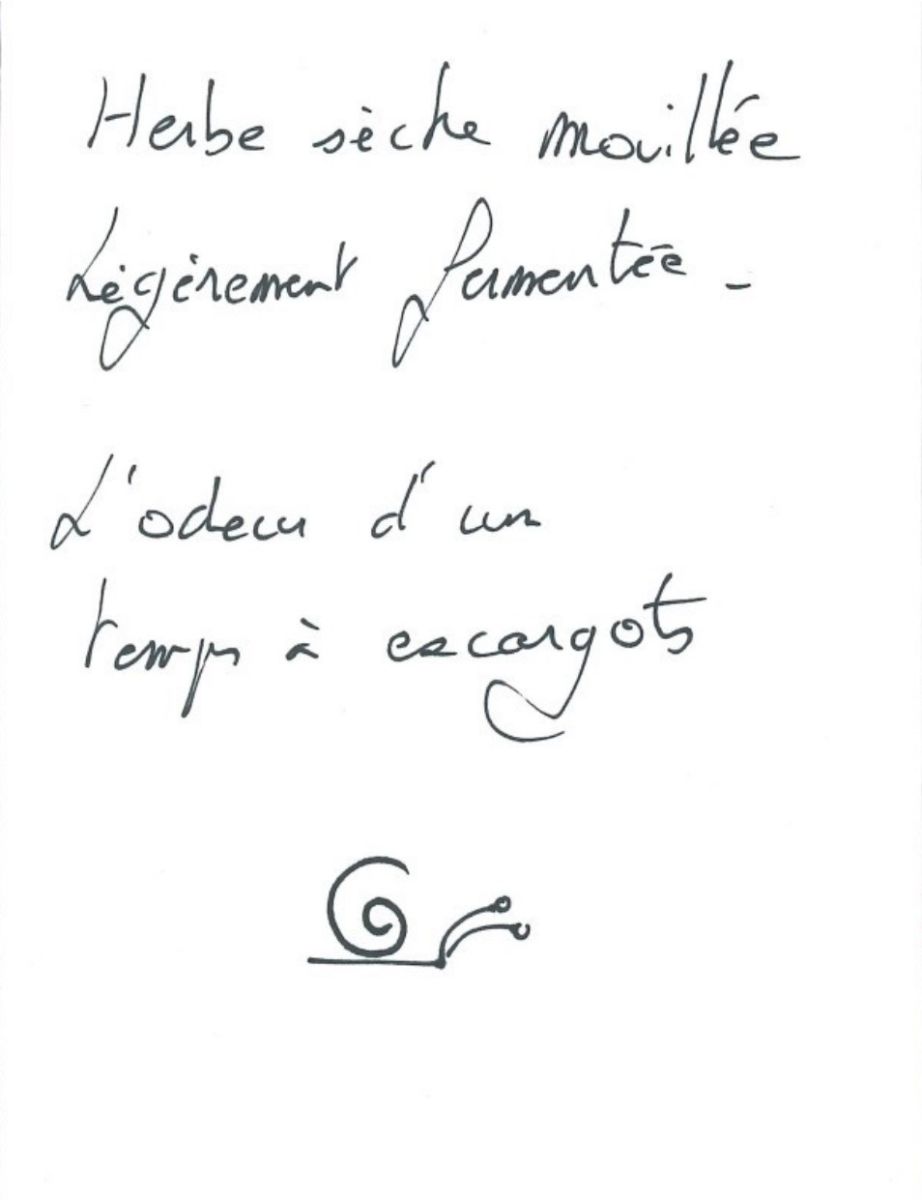 Herbe sèche mouillée
Légèrement fermentée -
L'odeur d'un
temps à escargots